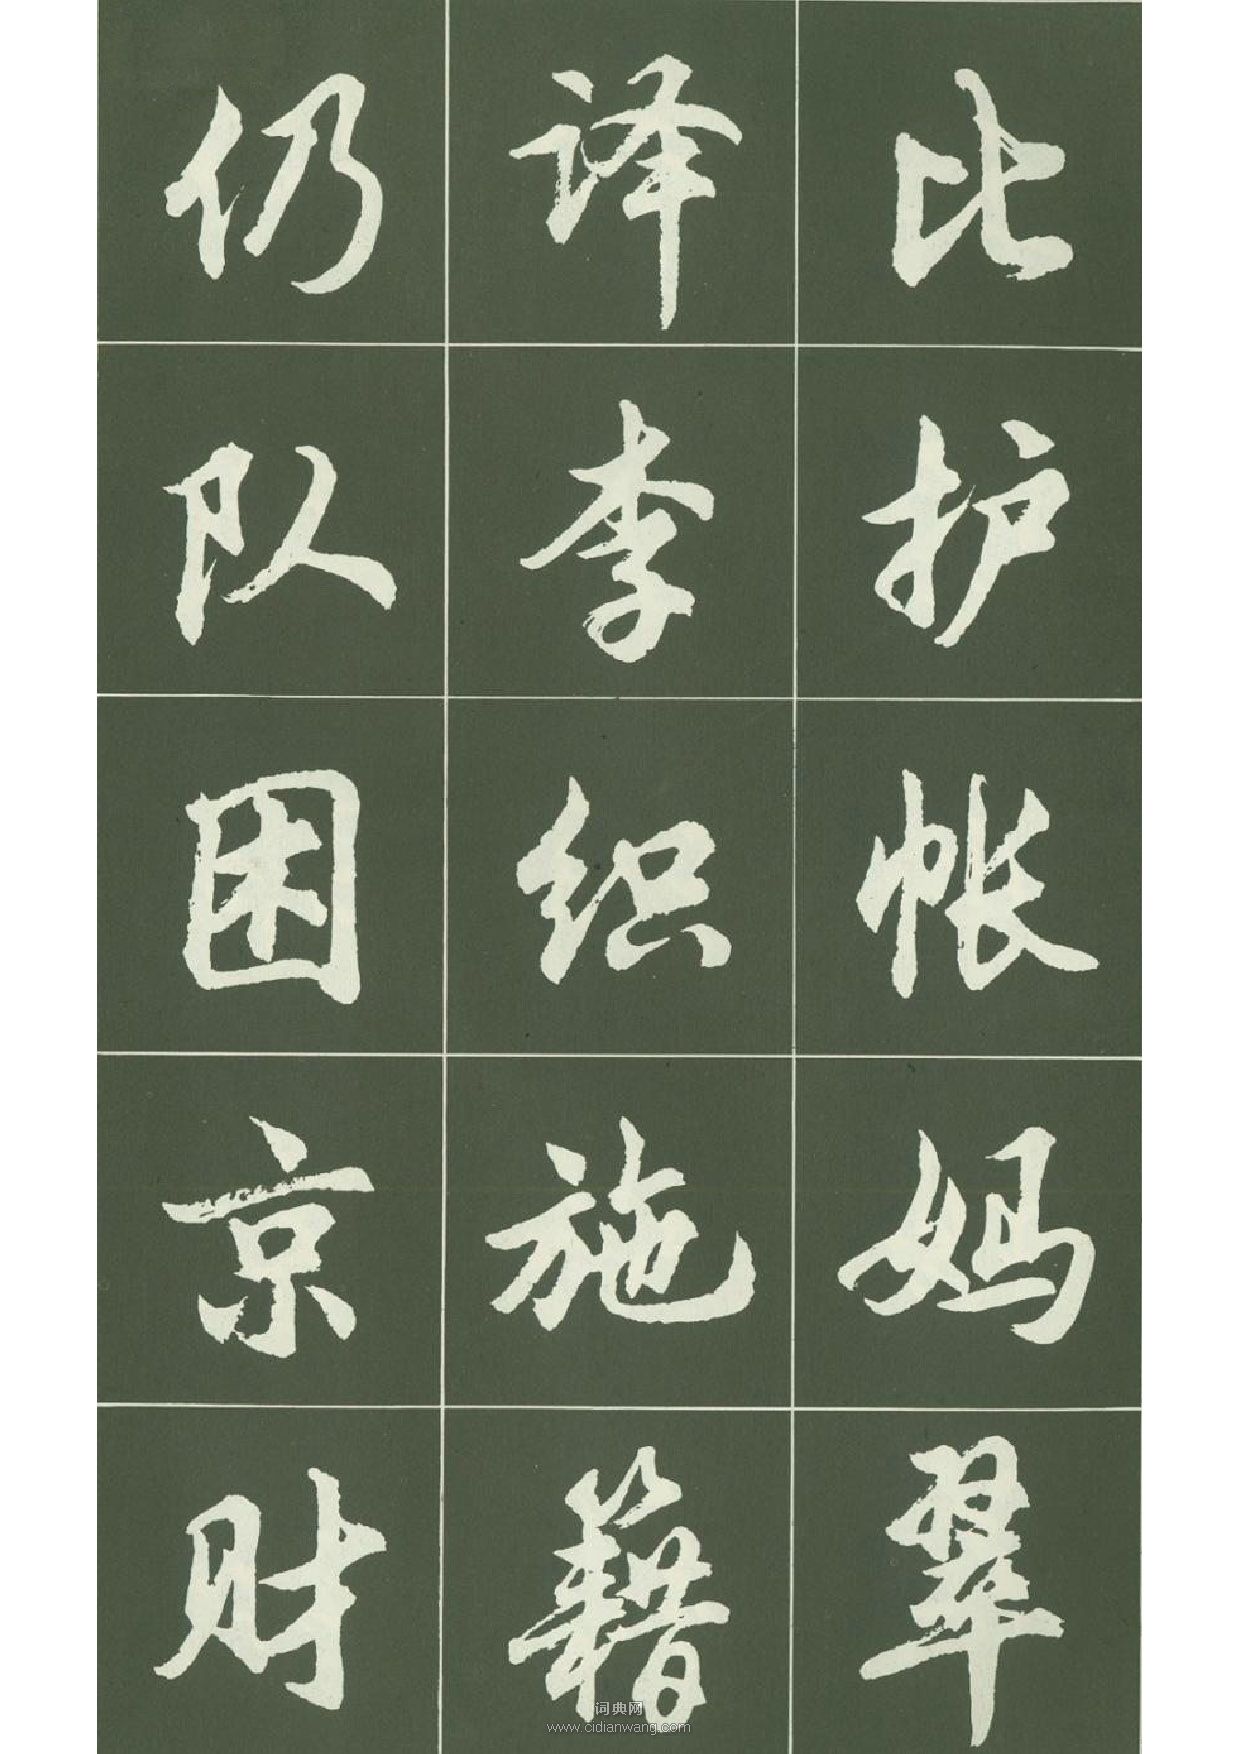 仍译比
队李护
困织帐
京施妈
财籍翠
词典网
www.cidianwang.com